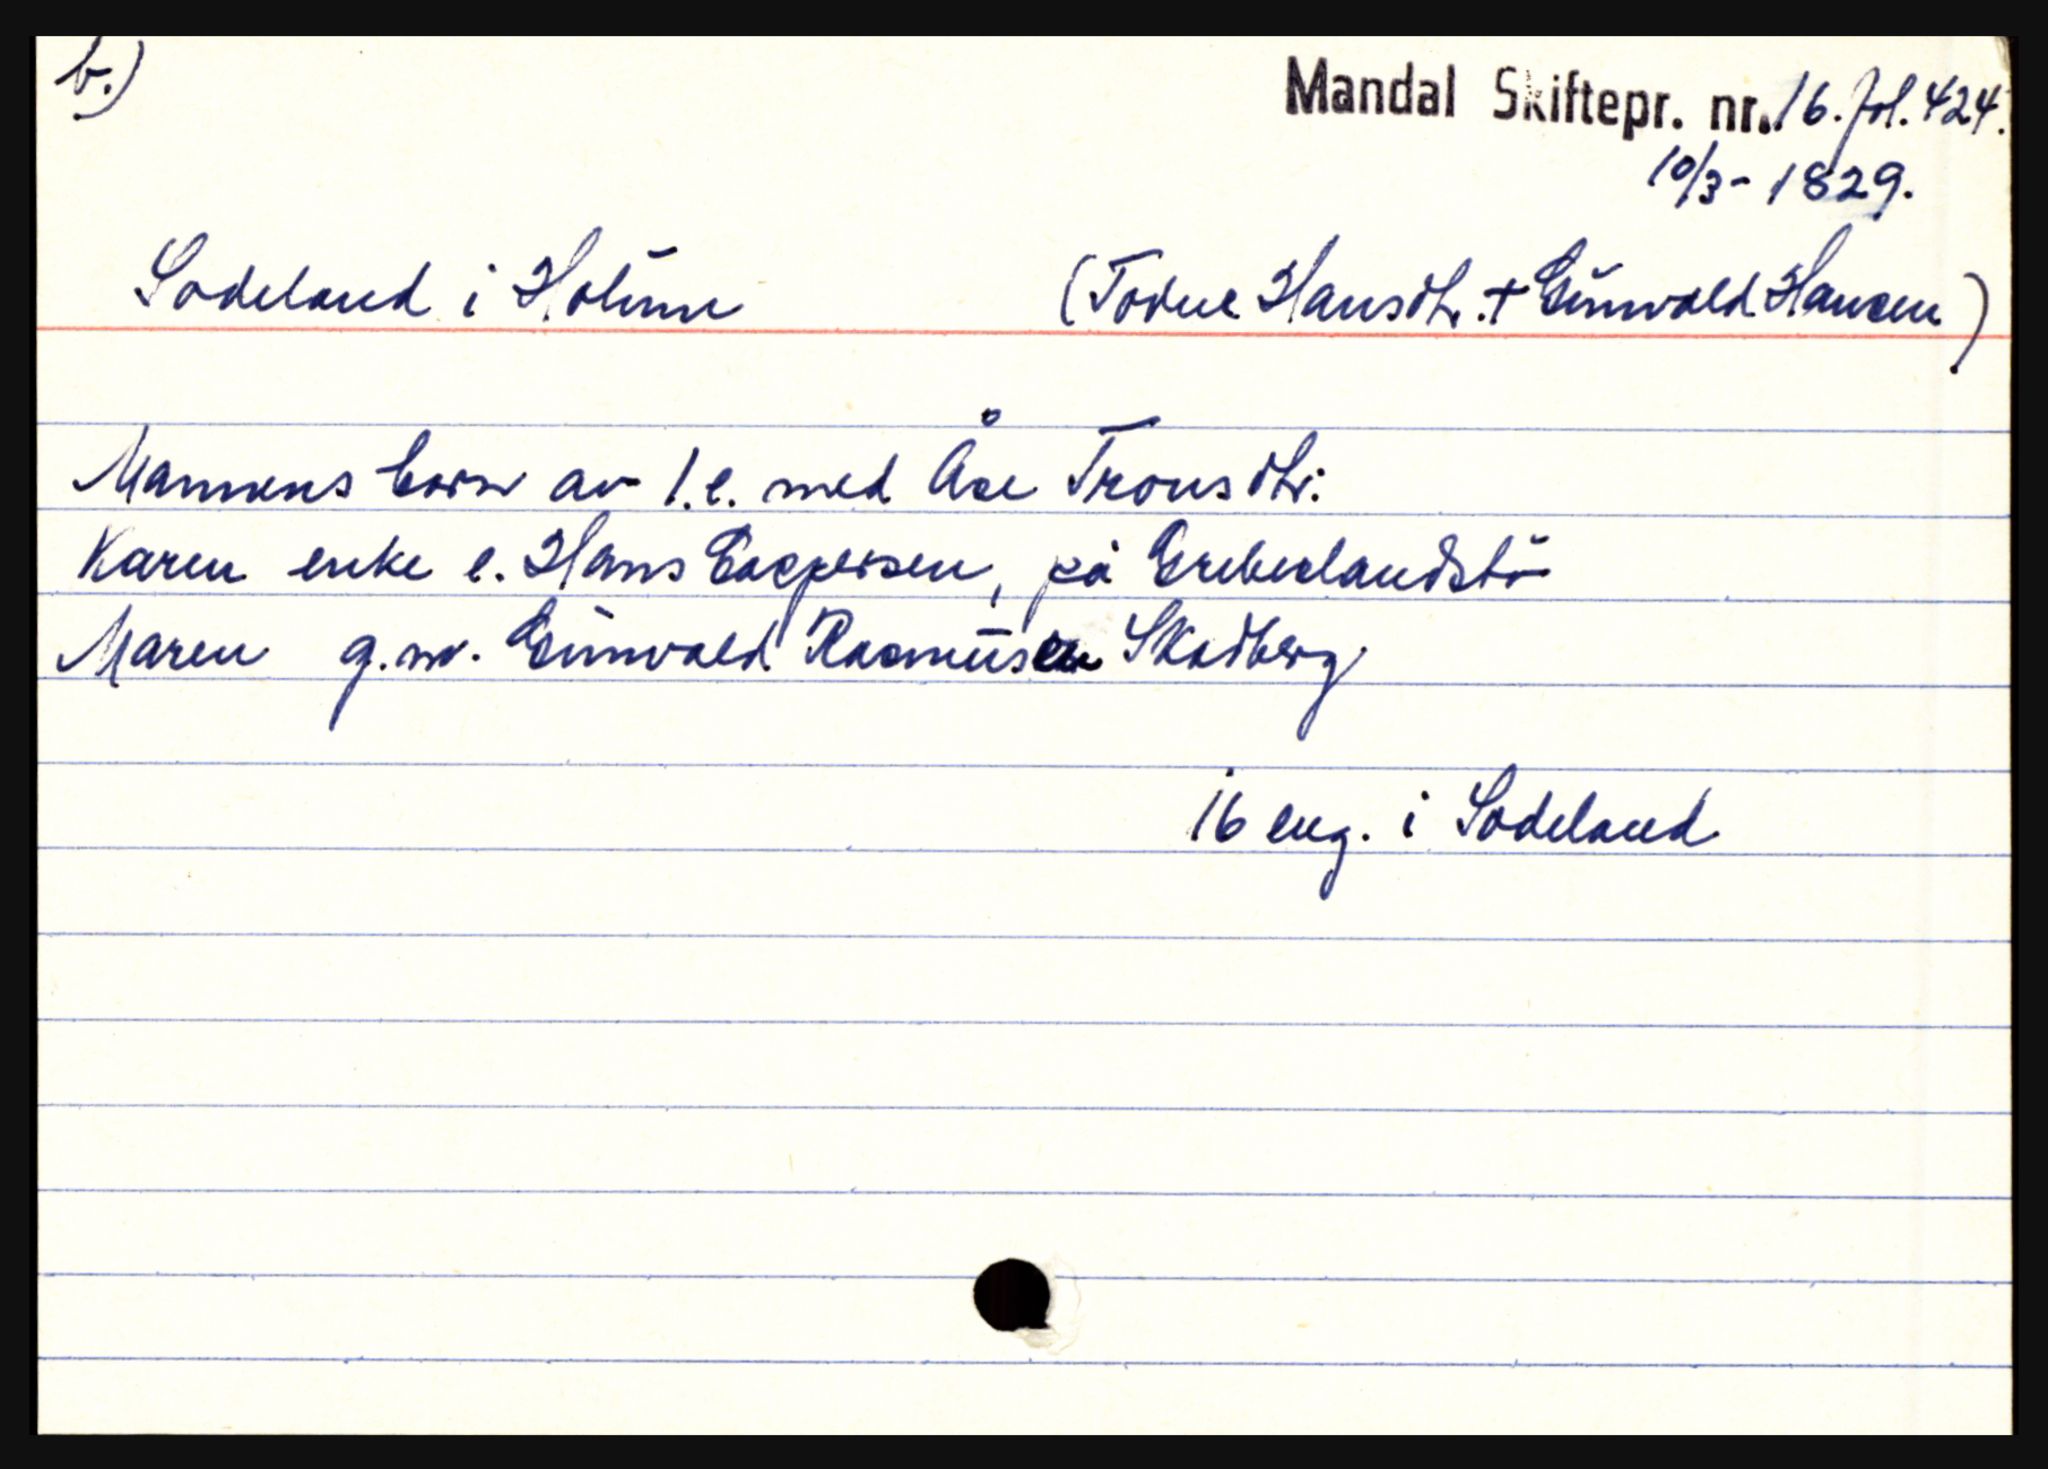 b.)
Mandal Skiftepr. nr. 16. fol. 424.
10/3 - 1829.
Sodeland i Holum (Todne Hansdtr. + Gunvald Hansen)
Mannens born av 1.e. med Åse Tronsdtr:
Karen enke e. Hans Caspersen, på
Maren g.m. Gunvald Rasmusen Skadberg
16 eng. i Sodeland